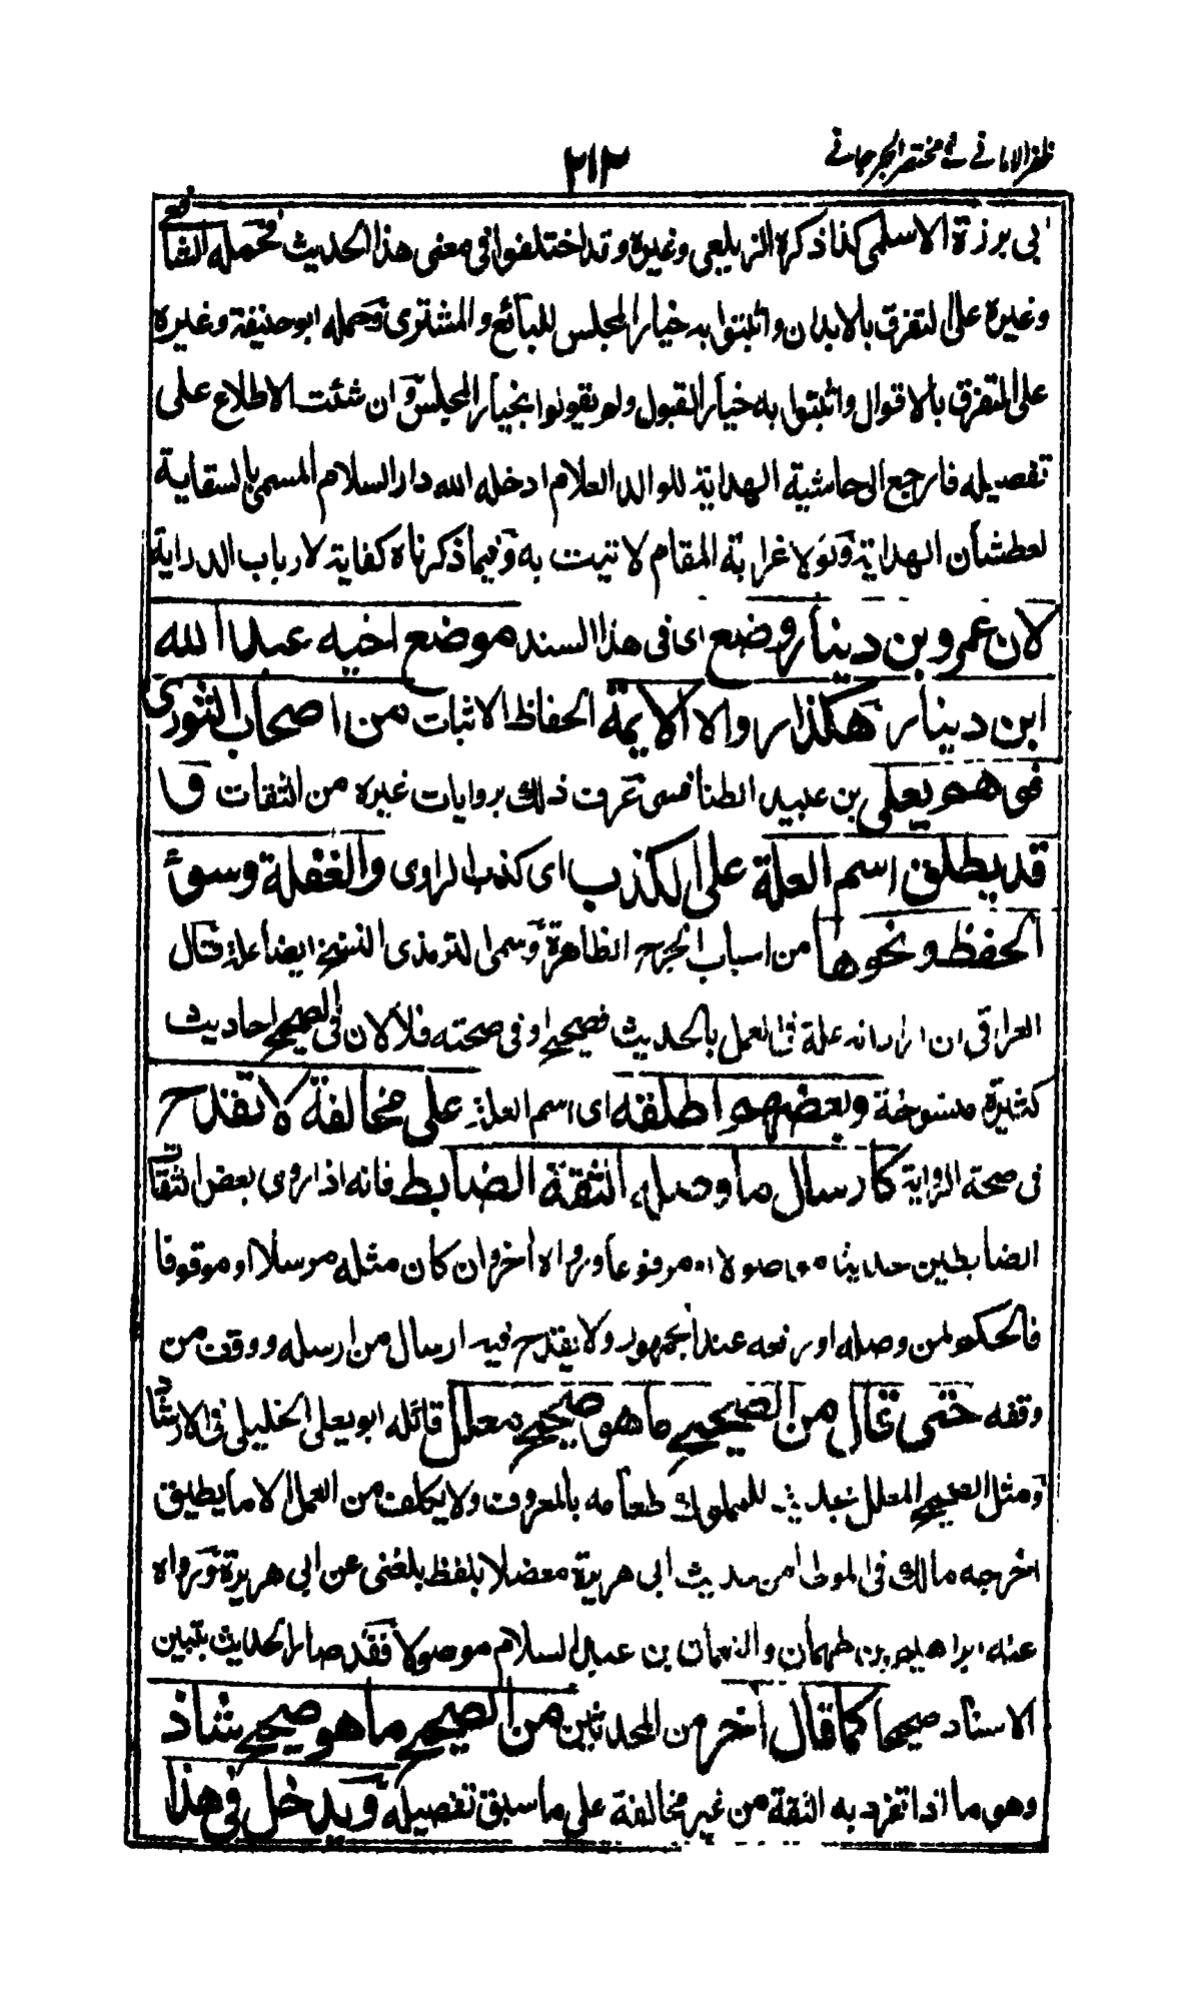 ظفر الامانے فے مختصر الجرجانے
٢١٢
ابى برزة الاسلمى كذا ذكره الزيلعى وغيره وقد اختلفوا فى معنى هذا الحديث فحمله الشافعے
وغيره على التفرق بالابدان واثبتوا به خيار المجلس للبائع والمشترى وحمله ابو حنيفة وغيره
على التفرق بالاقوال واثبتوا به خيار القبول ولم يقولوا بخيار المجلس وان شئت الاطلاع على
تفصيله فارجع الى حاشية الهداية للوالد العلام ادخله الله دار السلام المسمى بالسقاية
لعطشان الهداية ولولا غرابة المقام لاتيت به وفيما ذكرناه كفاية لارباب الدراية
لان عمرو بن دينار وضع اى فى هذا السند موضع اخيه عبد الله
ابن دينار هكذا رواه الايمة الحفاظ الاثبات من اصحاب الثورى
فوهم يعلى بن عبيد الطنافسى عرف ذلك بروايات غيره من الثقات و
قد يطلق اسم العلة على الكذب اى كذب الراوى والغفلة وسوء
الحفظ ونحوها من اسباب الجرح الظاهرة وسمى الترمذى النسخ ايضا علة قال
العراقى ان اراد انه علة فى العمل بالحديث فصحيح او فى صحته فلا لان فى الصحيح احاديث
كثيرة منسوخة وبعضهم اطلقه اى اسم العلة على مخالفة لا تقدح
فى صحة الرواية كارسال ما وصله الثقة الضابط فانه اذا روى بعض الثقات
الضابطين حديثا موصولا او مرفوعا ورواه آخر وان كان مثله مرسلا او موقوفا
فالحكم لمن وصله او رفعه عند الجمهور ولا يقدح فيه ارسال من ارسله ووقف من
وقفه حتى قال من الصحيح ما هو صحيح معلل قائله ابو يعلى الخليلى فى الارشاد
ومثل الصحيح المعلل بحديث للمملوك طعامه بالمعروف ولا يكلف من العمل الا ما يطيق
اخرجه مالك فى الموطا من حديث ابى هريرة معضلا بلفظ بلغنى عن ابى هريرة ورواه
عنه ابراهيم بن طهمان والنعمان بن عبد السلام موصولا فقد صار الحديث بتبين
الاسناد صحيحا كما قال آخر من المحدثين من الصحيح ما هو صحيح شاذ
وهو ما اذا تفرد به الثقة من غير مخالفة على ما سبق تفصيله ويدخل فى هذا